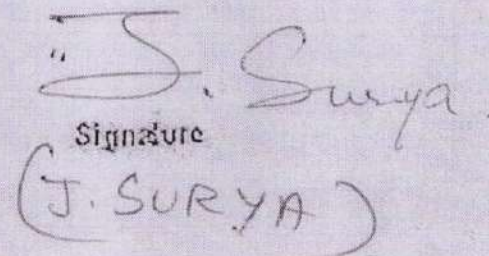 J. Surya
Signature
(J. SURYA)